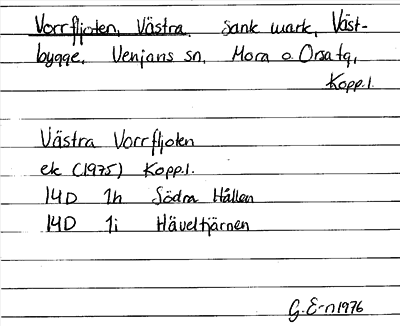 Vorrfljoten, Västra. Sank mark, Väst-
bygge, Venjans sn, Mora o Orsa tg,
Kopp.l.
Västra Vorrfljoten
ek (1975) Kopp.l.
14D 1h Södra Hållen
14D 1i Häveltjärnen
G. E-n 1976